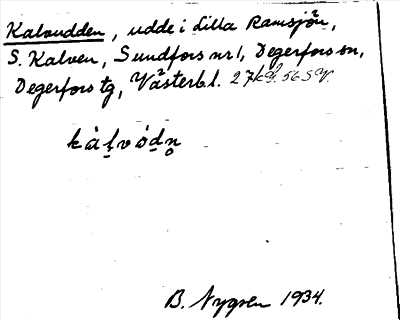 Kalvudden, udde i Lilla Ramsjön,
S. Kalven, Sundfors nr 1, Degerfors sn,
Degerfors tg, Västerb.l. 27
kàḷvòdn̥
B. Nygren 1934.